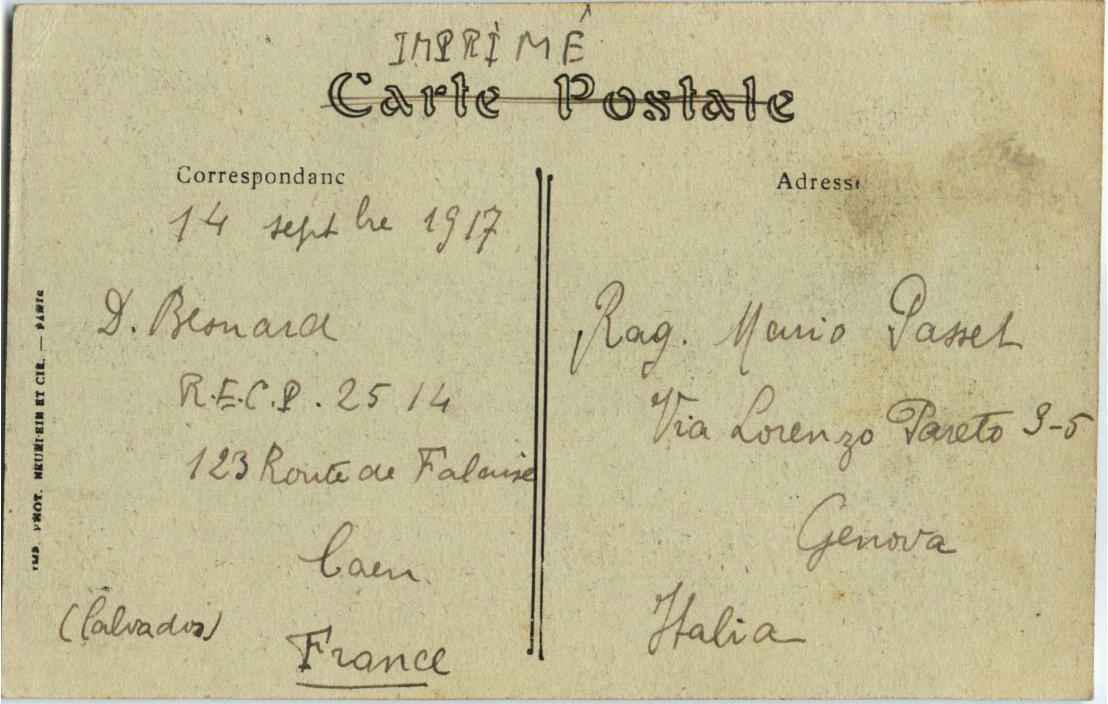 IMPRIMÉ
Carte Postale
Correspondanc
Adresse
14 septbre 1917
D. Besnard
R.E.C.P. 2514
123 Route de Falaise
Caen
(Calvados)
France
Rag. Mario Passet
Via Lorenzo Pareto 3-5
Genova
Italia
IMP. PHOT. NEURDEIN ET CIE. — PARIS